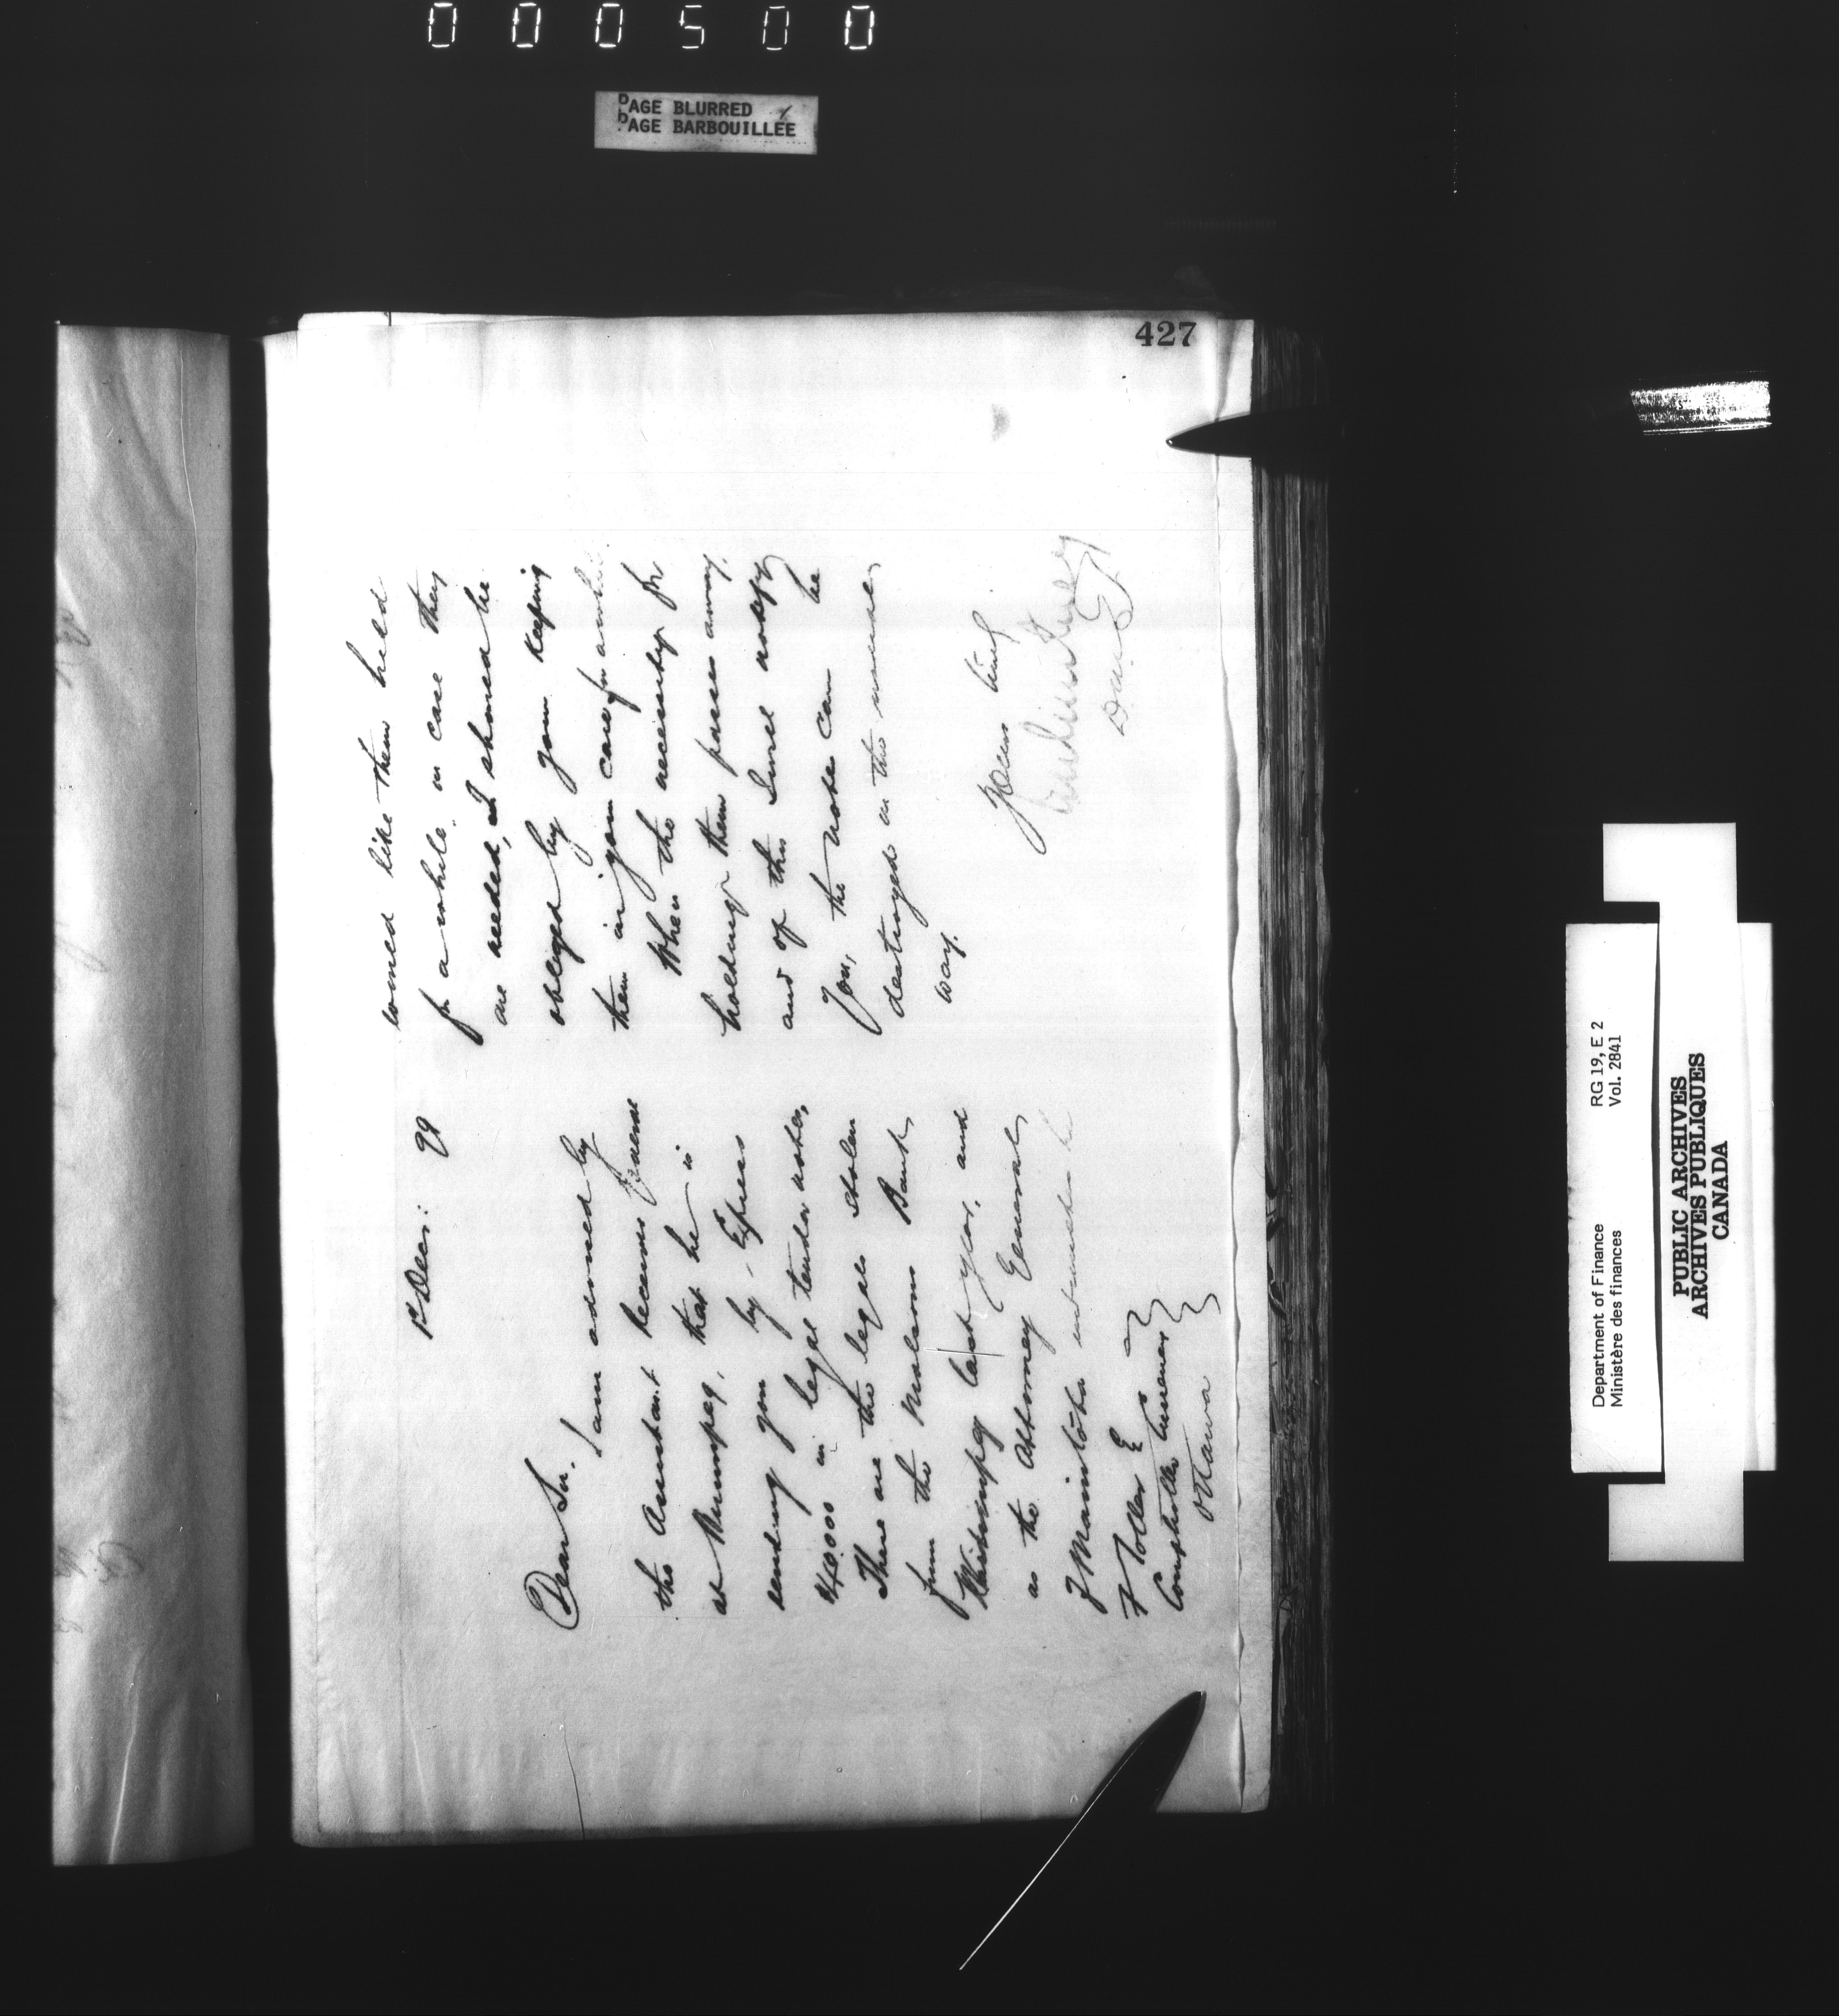 000500
PAGE BLURRED
PAGE BARBOUILLÉE
427
1st Decr: 99
Dear Sir.
I am advised by
the Assistant Receiver General
at Winnipeg, that he is
sending you by Express
$40,000 in legal tender notes,
These are the legals stolen
from the Molsons Bank
Winnipeg last year, and
as the Attorney General
of Manitoba
F Toller Esq
Comptroller Currency
Ottawa
would like them held
for a while, in case they
are needed, I should be
obliged by your keeping
them in your care for awhile.
When the necessity for
holding them passes away,
and of this I will notify
you, the notes can be
destroyed in the usual
way.
Yours truly
Department of Finance RG 19, E 2
Ministère des finances Vol. 2841
PUBLIC ARCHIVES
ARCHIVES PUBLIQUES
CANADA